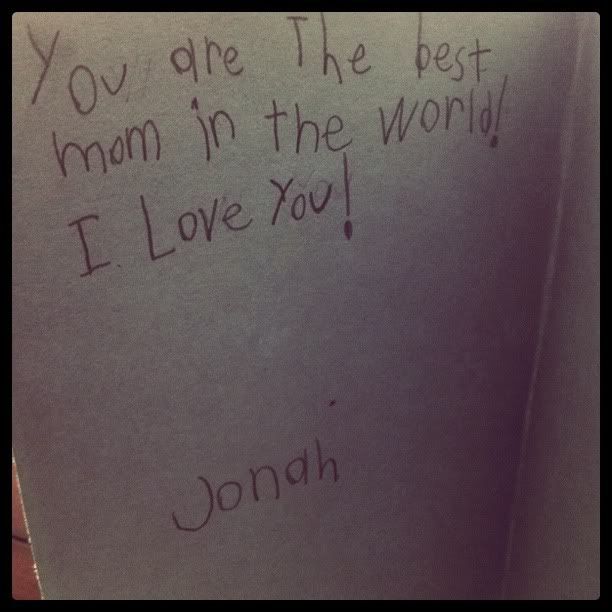 You are The best
mom in the world!
I Love You!
Jonah